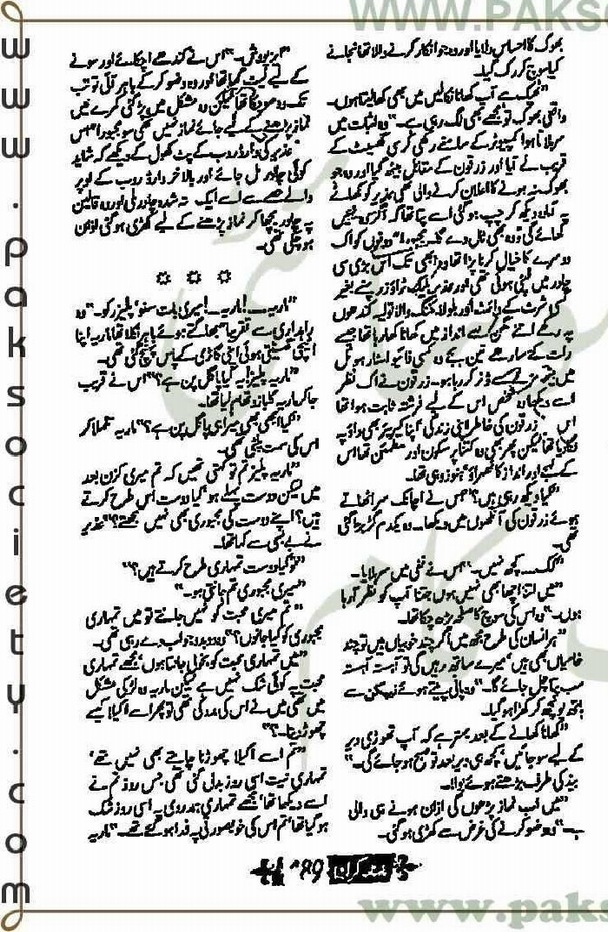 WWW.PAKSO
www.paksociety.com
بھوک کا احساس دلایا اور وہ جو انکار کرنے والا تھا نجانے
کیا سوچ کر رک گیا۔
"ٹھیک ہے آپ کھانا نکالیں میں بھی کھا لیتا ہوں۔
واقعی بھوک تو مجھے بھی لگ رہی ہے۔" وہ اثبات میں
سر ہلاتا ہوا کمپیوٹر کے سامنے رکھی کرسی گھسیٹ کے
قریب لے آیا اور زرتون کے مقابل بیٹھ گیا اور وہ جو
بھوک نہ ہونے کا اعلان کرنے والی تھی عذیر کو کھانے
پہ آمادہ دیکھ کر چپ ہو گئی اسے پتا تھا کہ اگر وہ نہیں
کھائے گی تو وہ بھی ٹال دے گا۔ مجبوراً دونوں کو اک
دوسرے کا خیال کرنا پڑا تھا وہ ابھی تک اس بڑی سی
چادر میں لپٹی ہوئی تھی اور عذیر بلیک ٹراؤزر پہنے بغیر
شرٹ کے وائٹ اور بلو لائننگ والا تولیہ کندھوں
پہ رکھے اتنے مگن سے انداز میں کھانا کھا رہا تھا جیسے
رات کے ساڑھے تین بجے وہ کسی فائیو اسٹار ہوٹل
میں بیٹھے مزے سے ڈنر کر رہا ہو۔ زرتون نے اک نظر
اسے دیکھا وہ شخص اس کے لیے فرشتہ ثابت ہوا تھا
اس نے زرتون کی خاطر اپنی زندگی اپنا کیریئر بھی داؤ پہ
لگا دیا تھا لیکن پھر بھی وہ کتنا پرسکون اور مطمئن تھا اس
کے لیے اور انداز کا ٹھہراؤ ہنوز وہی تھا۔
"کیا دیکھ رہی ہیں؟" اس نے اچانک سر اٹھاتے
ہوئے زرتون کی آنکھوں میں دیکھا۔ وہ یکدم گڑبڑا گئی
تھی۔
"کک۔۔۔ کچھ نہیں۔" اس نے نفی میں سر ہلایا۔
"میں اتنا اچھا بھی نہیں ہوں جتنا آپ کو نظر آ رہا
ہوں۔" وہ اس کی سوچ کا سطور پڑھ چکا تھا۔
"ہر انسان کی طرح مجھ میں اگر چند خوبیاں ہیں تو چند
خامیاں بھی ہیں میرے ساتھ رہیں گی تو آہستہ آہستہ
سب پتا چل جائے گا۔" وہ پانی پیتے ہوئے نیپکن سے
ہاتھ پونچھ کر کھڑا ہو گیا۔
"کھانا کھانے کے بعد بہتر ہے کہ آپ تھوڑی دیر
کے لیے سو جائیں کچھ ہی دیر بعد تو صبح ہو جائے گی۔"
بیڈ کی طرف بڑھتے ہوئے بولا۔
"میں اب نماز پڑھوں گی اذان ہونے ہی والی
ہے۔" وہ وضو کرنے کی غرض سے کھڑی ہو گئی۔
"ایز یو وش۔" اس نے کندھے اچکائے اور سونے
کے لیے لیٹ گیا تھا اور وہ وضو کر کے باہر آئی تو تب
تک وہ سو چکا تھا لیکن وہ مشکل میں پڑ گئی کمرے میں
نماز پڑھنے کے لیے جائے نماز نہیں تھی سو مجبوراً اس
عذیر کی وارڈ روب کے پٹ کھول کے دیکھے کہ شاید
کوئی چادر مل جائے اور بالآخر وارڈ روب کے اوپر
والے حصے سے اسے ایک تہہ شدہ چادر ملی اور وہ قالین
پہ چادر بچھا کر نماز پڑھنے کے لیے کھڑی ہو گئی اذان
ہو چکی تھی۔
☼ ☼ ☼
"ماریہ۔۔۔! ماریہ۔۔۔! میری بات سنو! پلیز رکو۔" وہ
راہداری سے تقریباً بھاگتے ہوئے باہر نکلا تھا ماریہ اپنا
اٹیچی گھسیٹتی ہوئی اپنی گاڑی کے پاس پہنچ گئی تھی۔
"ماریہ پلیز! یہ کیا پاگل پن ہے؟" اس نے قریب
جا کر ماریہ کا بازو تھام لیا تھا۔
"کیا ابھی بھی میرا ہی پاگل پن ہے؟" ماریہ تلملا کر
اس کی سمت پلٹی تھی۔
"ماریہ پلیز تم تو کہتی تھیں کہ تم میری کزن بعد
میں لیکن دوست پہلے ہو کیا دوست اس طرح کرتے
ہیں؟ اپنے دوست کی مجبوری بھی نہیں سمجھتے؟" عذیر
نے بے بسی سے کہا تھا۔
"تو کیا دوست تمہاری طرح کرتے ہیں؟"
"میری مجبوری تم جانتی ہو۔"
"تم میری محبت کو نہیں جانتے تو میں تمہاری
مجبوری کو کیا جانوں؟" وہ دوبدو جواب دے رہی تھی۔
"میں تمہاری محبت کو بخوبی جانتا ہوں مجھے تمہاری
محبت پہ کوئی شک نہیں ہے لیکن ماریہ وہ لڑکی مشکل
میں تھی میں نے اس کی مدد کی تھی تو پھر اسے اکیلا کیسے
چھوڑ دیتا۔۔؟"
"تم اسے اکیلا چھوڑنا چاہتے بھی نہیں تھے
تمہاری نیت اسی روز بدل گئی تھی جس روز تم نے
اسے دیکھا تھا مجھے تمہاری ہمدردی۔ اسی روز شک
ہو گیا تھا تم اس کی خوبصورتی پہ فدا ہو گئے تھے۔" ماریہ
ماہنامہ کرن 89
www.paks